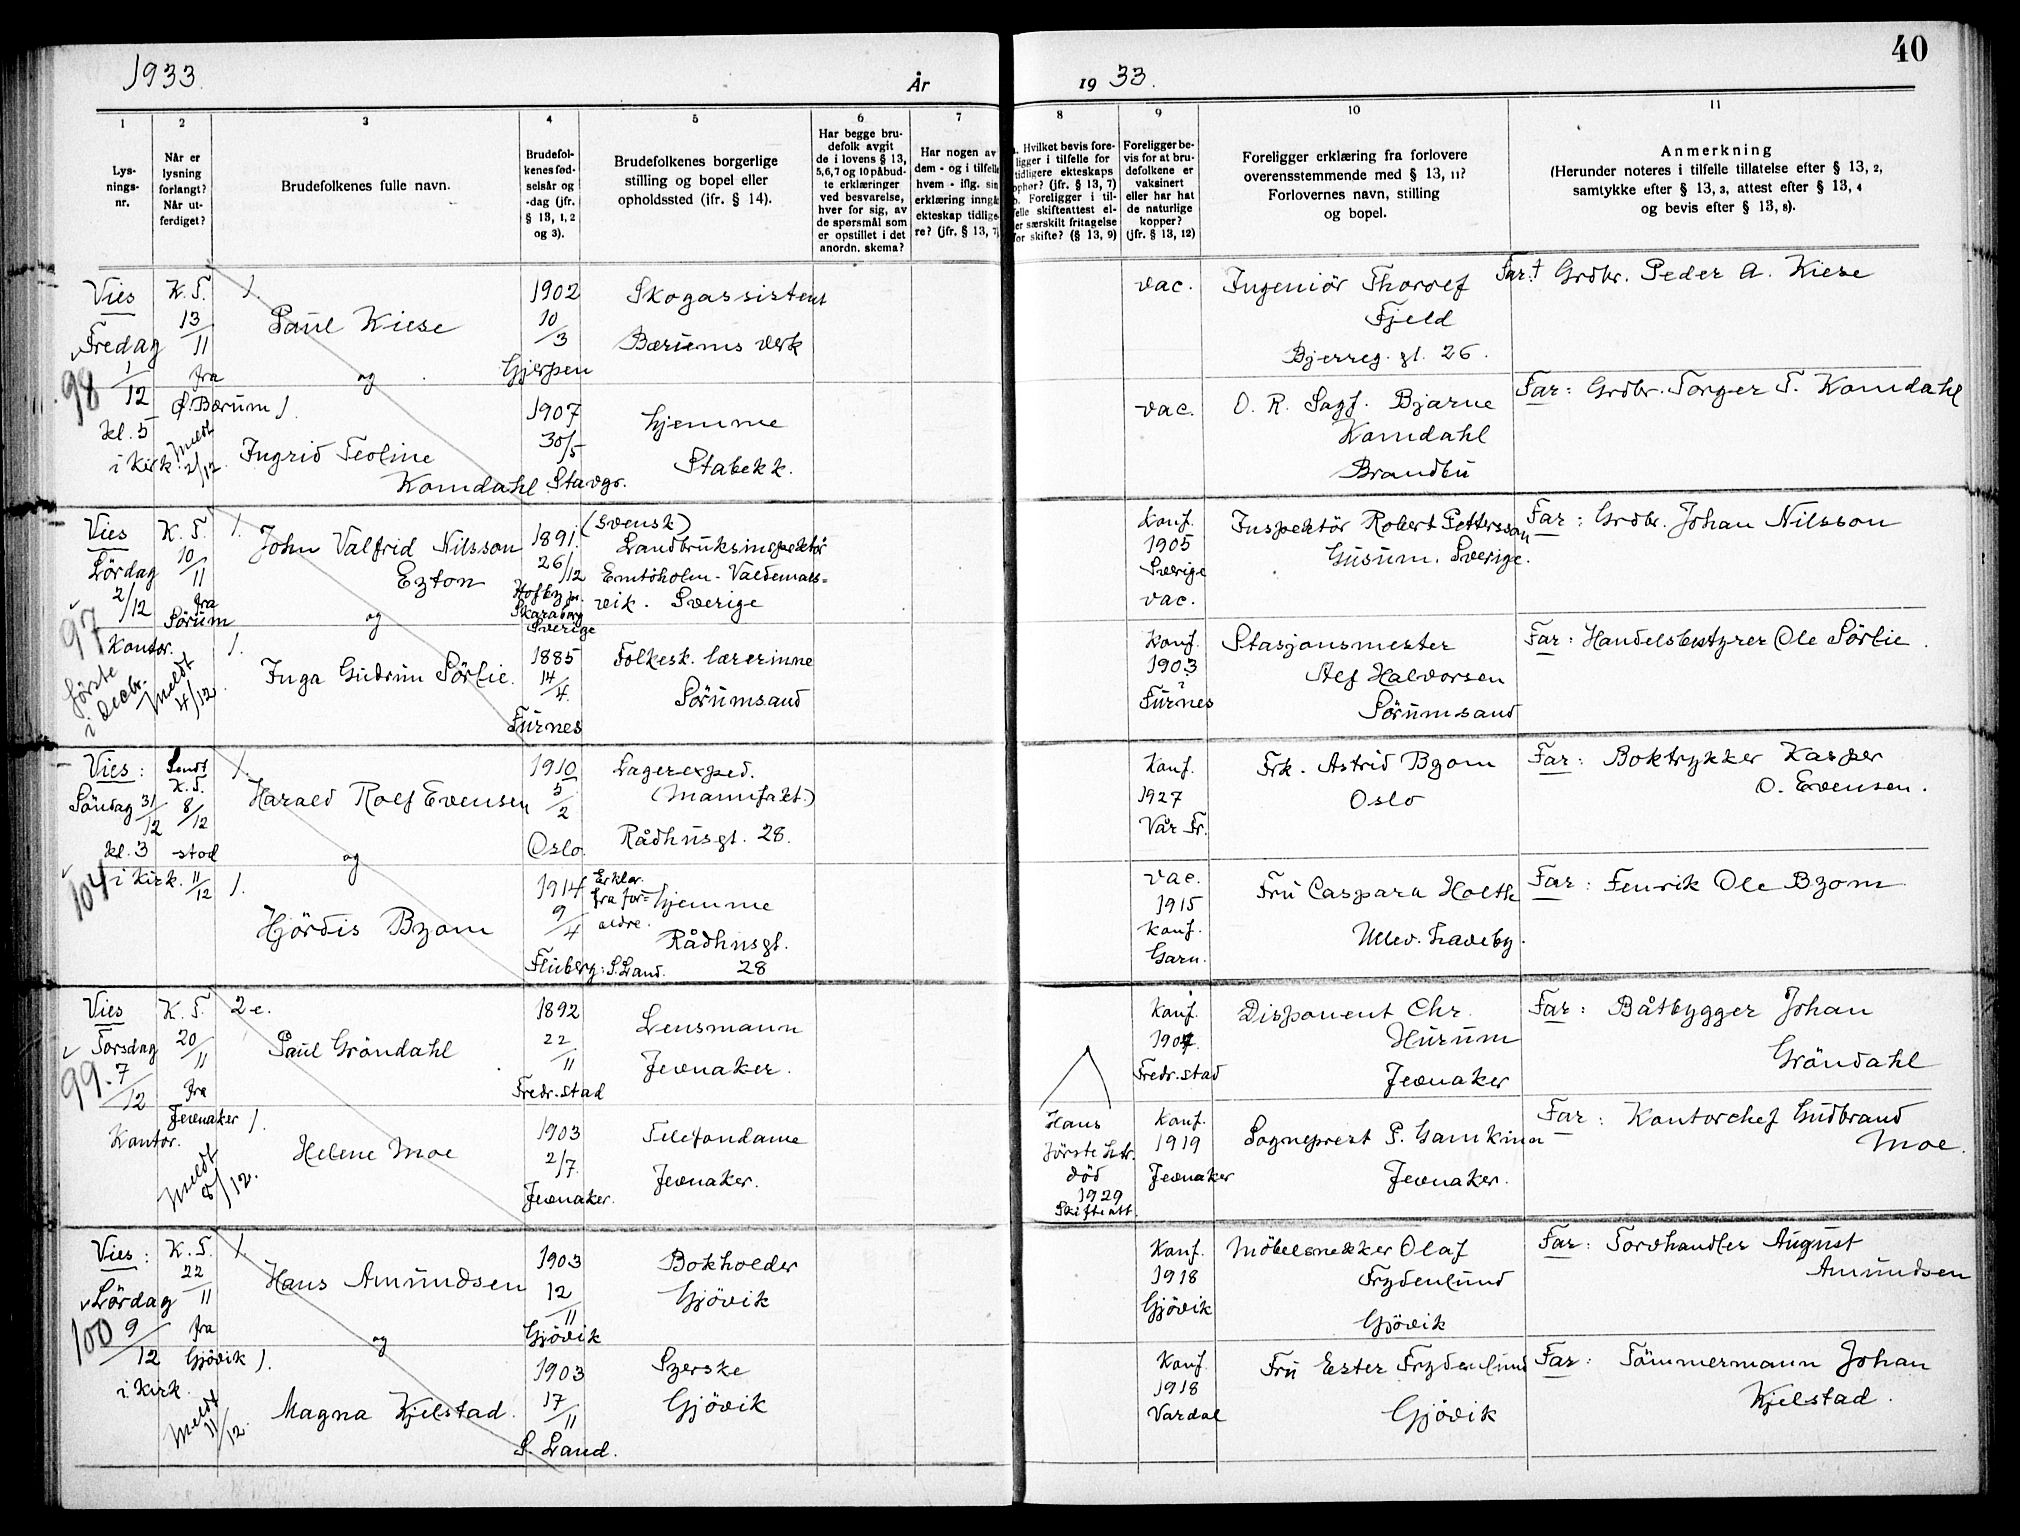 40
1933.
År
19 33.
1
2
3
4
5
6
7
8
9
10
11
Lysningsnr.
Når er
lysning
forlangt?
Når utferdiget?
Brudefolkenes fulle navn.
Brudefolkenes fødselsår og
-dag (jfr.
§ 13, 1, 2
og 3).
Brudefolkenes borgerlige
stilling og bopel eller
opholdssted (jfr. § 14).
Har begge brudefolk avgit
de i lovens § 13,
5, 6, 7 og 10 påbudte erklæringer
ved besvarelse,
hver for sig, av
de spørsmål som
er opstillet i det
anordn. skema?
Har nogen av
dem - og i tilfelle
hvem - iflg. sin
erklæring inngå
ekteskap tidlige-
re? (jfr. § 13, 7)
. Hvilket bevis fore-
ligger i tilfelle for
tidligere ekteskaps
ophør? (jfr. § 13, 7)
b. Foreligger i til-
felle skifteattest el-
er særskilt fritagelse
for skifte? (§ 13, 9)
Foreligger be-
vis for at bru-
defolkene er
vaksinert
eller har hat
de naturlige
kopper?
(jfr. § 13, 12)
Foreligger erklæring fra forlovere
overensstemmende med § 13, 11?
Forlovernes navn, stilling
og bopel.
Anmerkning
(Herunder noteres i tilfelle tillatelse efter § 13, 2,
samtykke efter § 13, 3, attest efter § 13, 4
og bevis efter § 13, 8).
Vies
Fredag
1/12
98
kl. 5
i Kirk.
K. T.
13/11
fra
Ø. Bærum
Meldt
2/12
1.
Paul Kiese
og
1.
Ingrid Teoline
Komdahl
1902
10/3
Gjerpen
1907
30/5
Stavgr.
Skogassistent
Bærums Verk
hjemme
Stabekk.
vac.
vac.
Ingeniør Thorolf
Fjeld
Bjerreg. gt. 26.
O. R. Sagf. Bjarne
Komdahl
Brandbu
Far: † Grdbr. Peder A. Kiese
Far: Grdbr. Torger T. Komdahl
Vies
Lördag
2/12
97
Kontor.
første
i decbr.
K. T.
10/11
fra
Sörum
Meldt
4/12
1.
John Valfrid Nilsson
Ezton
og
1.
Inga Gudrun Sörlie.
1891.
26/12
Skaraborg
Sverige
1885
14/4.
Furnes
(svensk)
Landbruksinspektör
Emtöholm - Valdemars=
vik. Sverige
Folkesk. lærerinne
Sörumsand
Konf.
1905
Sverige
vac.
Konf.
1903
?
Furnes
Inspektör Robert Pettersson
Gusum. Sverige.
Stasjonsmester
Alf Halvorsen
Sörumsand
Far: Grdbr. Johan Nilsson
Far: Handelsbestyrer Ole Sörlie.
Vies:
Söndag 31/12
kl. 3
i Kirk.
104
Sendt
K. T.
8/12
stod
11/12
1.
Harald Rolf Evensen
og
1.
Hjördis Byom
1910
5/2
Oslo.
1914
9/4
Fluberg: S. Land.
Lagerexped.
(Manufakt.)
Rådhusgt. 28.
Erklær.
fra for=
eldre.
hjemme
Rådhusgt.
28
Konf.
1927
Vår Fr.
vac.
1915
Konf.
Garn.
Frk. Astrid Byom
Oslo
Fru Caspara Holth
Ullev. haveby.
Far: Boktrykker Kasper
O. Evensen.
Far: Fenrik Ole Byom
Vies
Torsdag
7/12
99.
Kontor.
K. T.
20/11
fra
Jevnaker
Meldt
8/12.
2 e.
Paul Gröndahl
1.
Helene Moe
1892
22/11
Fredr.stad
1903
2/7.
Jevnaker.
Lensmann
Jevnaker.
Telefondame
Jevnaker.
Hans
förste htr.
död
1929
Skifteatt.
Konf.
1907.
Fredr.stad
Konf.
1919
Jevnaker
Disponent Chr.
Hurum
Jevnaker
Sogneprest P. Gamkinn
Jevnaker.
Far: Båtbygger Johan
Gröndahl
Far: Kontorchef Gudbrand
Moe.
Vies:
Lördag
9/12
100
i Kirk.
K. T.
22/11
fra
Gjövik
Meldt
11/12.
1.
Hans Amundsen
og
1.
Magna Kjelstad.
1903
12/11
Gjövik
1903
17/11
S. Land.
Bokholder
Gjövik
Syerske
Gjövik
Konf.
1918
Gjövik
Konf.
1918
Vardal
Möbelsnekker Olaf
Frydenlund
Gjövik
Fru Ester Frydenlund
Gjövik
Far: Torvhandler August
Amundsen
Far: Tömmermann Johan
Kjelstad.